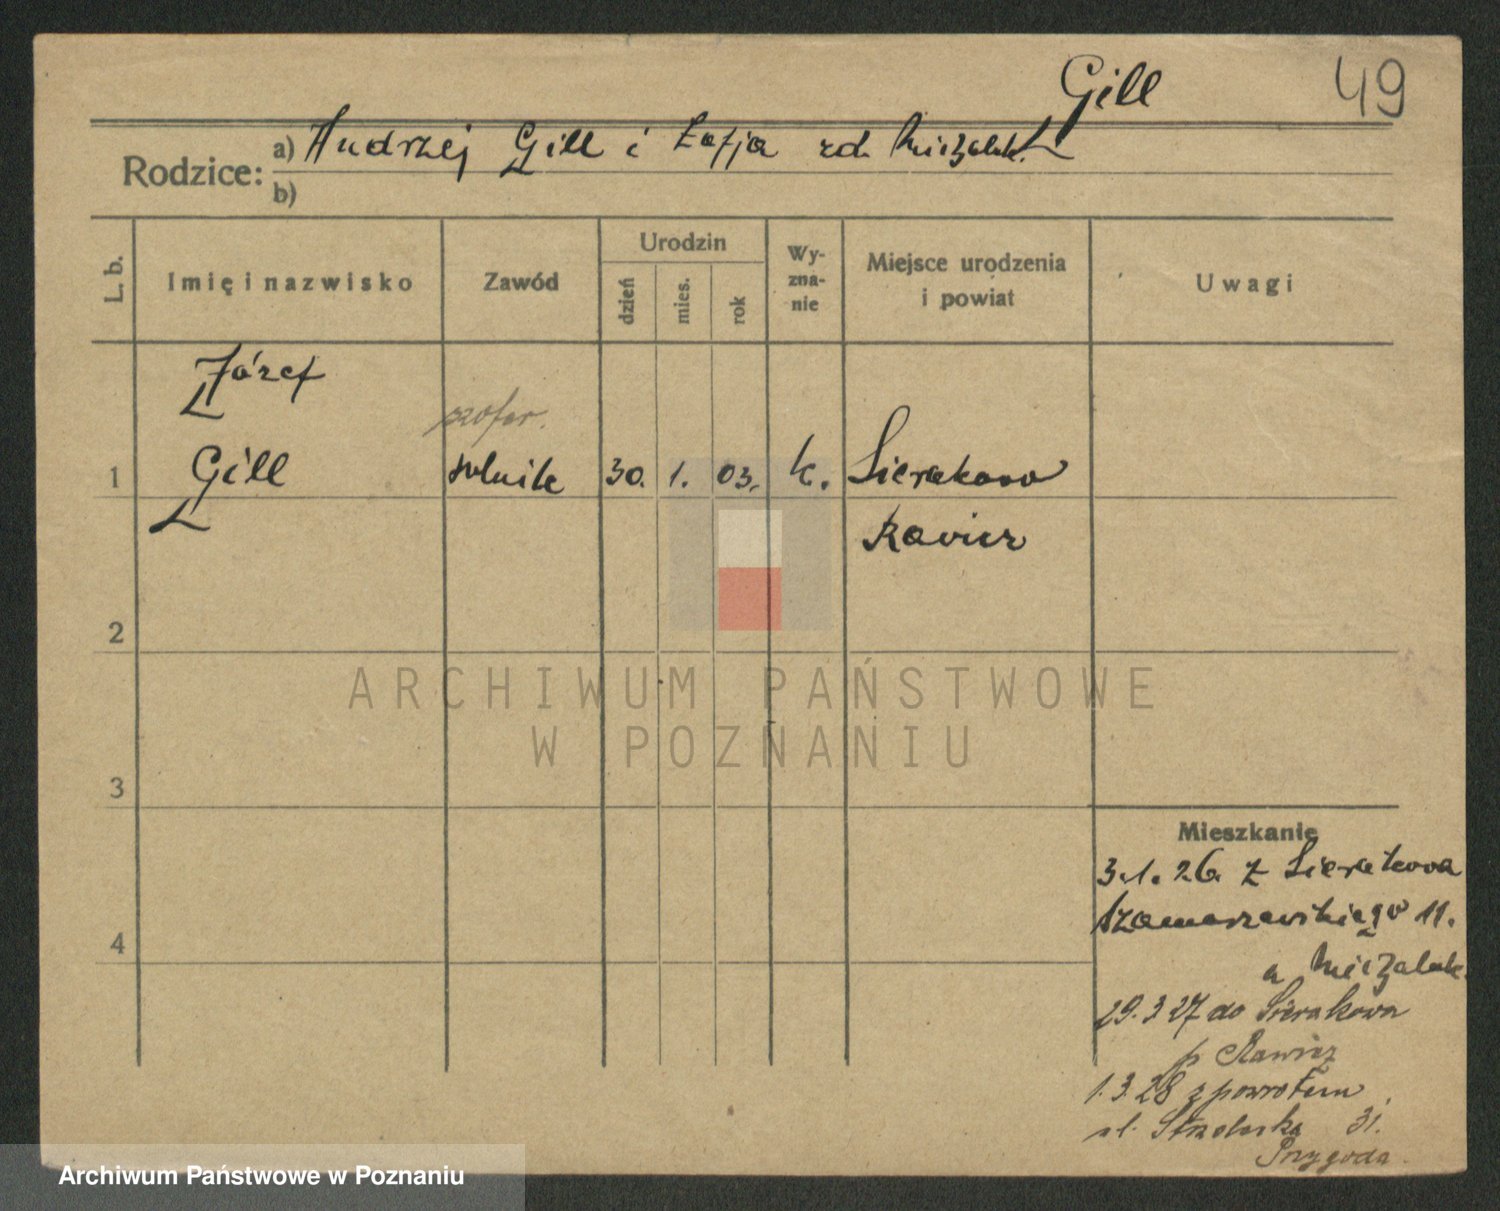 Gill
49
Rodzice:
a) Andrzej Gill i Zofja zd. Miczalak.
b)
L. b.
Imię i nazwisko
Zawód
Urodzin
dzień
mies.
rok
Wy-
zna-
nie
Miejsce urodzenia
i powiat
Uwagi
Józef
szofer.
1 Gill rolnik 30. 1. 03. k. Sierakowo
Rawicz
2
ARCHIWUM PAŃSTWOWE
W POZNANIU
3
Mieszkanie
3.1.26. z Sierakowa
Szamarzewskiego 11.
u Miczalak.
4
29.3 27 do Sierakowa
p Rawicz
1.3.28 z powrotem
ul. 31.
Przygoda.
Archiwum Państwowe w Poznaniu